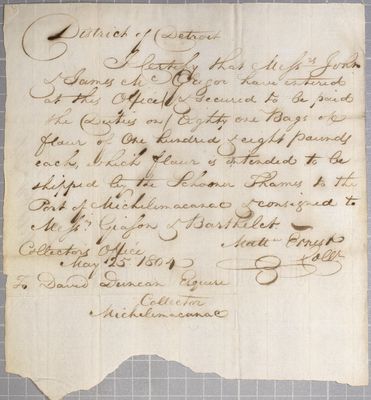 District of Detroit
I Certify that Mess.rs John
& James Mc Gregor have entered
at this Office & secured to be paid
the Duties on Eighty one Bags of
flour of One hundred & eight pounds
each, which flour is intended to be
shipped by the Schooner Thames to the
Port of Michilimacanac & consigned to
Mess.rs Giason & Barthelet
Matt.w Ernest
Collectors Office
Coll.r
May 25 1804
To David Duncan Esquire
Collector
Michilimacanac